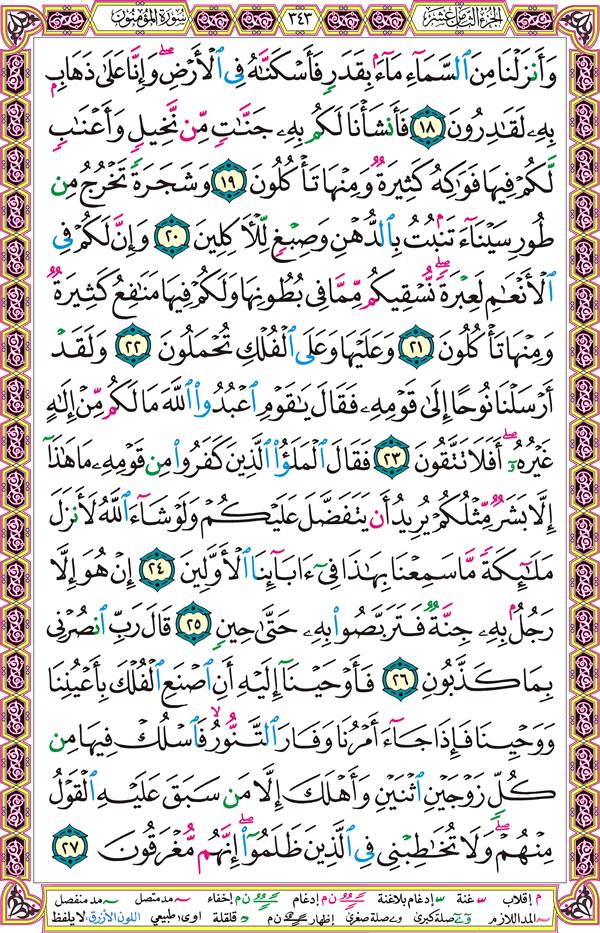 الجزء الثامن عشر ٣٤٣ سورة المؤمنون
وَأَنزَلْنَا مِنَ ٱلسَّمَآءِ مَآءًۢ بِقَدَرٍ فَأَسْكَنَّٰهُ فِى ٱلْأَرْضِ ۖ وَإِنَّا عَلَىٰ ذَهَابٍۭ
بِهِۦ لَقَٰدِرُونَ ١٨ فَأَنشَأْنَا لَكُم بِهِۦ جَنَّٰتٍ مِّن نَّخِيلٍ وَأَعْنَٰبٍ
لَّكُمْ فِيهَا فَوَٰكِهُ كَثِيرَةٌ وَمِنْهَا تَأْكُلُونَ ١٩ وَشَجَرَةً تَخْرُجُ مِن
طُورِ سَيْنَآءَ تَنۢبُتُ بِٱلدُّهْنِ وَصِبْغٍ لِّلْءَاكِلِينَ ٢٠ وَإِنَّ لَكُمْ فِى
ٱلْأَنْعَٰمِ لَعِبْرَةً ۖ نُّسْقِيكُم مِّمَّا فِى بُطُونِهَا وَلَكُمْ فِيهَا مَنَٰفِعُ كَثِيرَةٌ
وَمِنْهَا تَأْكُلُونَ ٢١ وَعَلَيْهَا وَعَلَى ٱلْفُلْكِ تُحْمَلُونَ ٢٢ وَلَقَدْ
أَرْسَلْنَا نُوحًا إِلَىٰ قَوْمِهِۦ فَقَالَ يَٰقَوْمِ ٱعْبُدُوا۟ ٱللَّهَ مَا لَكُم مِّنْ إِلَٰهٍ
غَيْرُهُۥٓ ۖ أَفَلَا تَتَّقُونَ ٢٣ فَقَالَ ٱلْمَلَؤُا۟ ٱلَّذِينَ كَفَرُوا۟ مِن قَوْمِهِۦ مَا هَٰذَآ
إِلَّا بَشَرٌ مِّثْلُكُمْ يُرِيدُ أَن يَتَفَضَّلَ عَلَيْكُمْ وَلَوْ شَآءَ ٱللَّهُ لَأَنزَلَ
مَلَٰٓئِكَةً مَّا سَمِعْنَا بِهَٰذَا فِىٓ ءَابَآئِنَا ٱلْأَوَّلِينَ ٢٤ إِنْ هُوَ إِلَّا
رَجُلٌۢ بِهِۦ جِنَّةٌ فَتَرَبَّصُوا۟ بِهِۦ حَتَّىٰ حِينٍ ٢٥ قَالَ رَبِّ ٱنصُرْنِى
بِمَا كَذَّبُونِ ٢٦ فَأَوْحَيْنَآ إِلَيْهِ أَنِ ٱصْنَعِ ٱلْفُلْكَ بِأَعْيُنِنَا
وَوَحْيِنَا فَإِذَا جَآءَ أَمْرُنَا وَفَارَ ٱلتَّنُّورُ ۙ فَٱسْلُكْ فِيهَا مِن
كُلٍّ زَوْجَيْنِ ٱثْنَيْنِ وَأَهْلَكَ إِلَّا مَن سَبَقَ عَلَيْهِ ٱلْقَوْلُ
مِنْهُمْ ۖ وَلَا تُخَٰطِبْنِى فِى ٱلَّذِينَ ظَلَمُوٓا۟ ۖ إِنَّهُم مُّغْرَقُونَ ٢٧
م إقلاب غنة إدغام بلاغنة ن م إدغام ن م إخفاء مد متصل مد منفصل
المد اللازم صلة كبرى صلة صغرى إظهار ن م قلقلة اوى طبيعي اللون الأزرق لا يلفظ